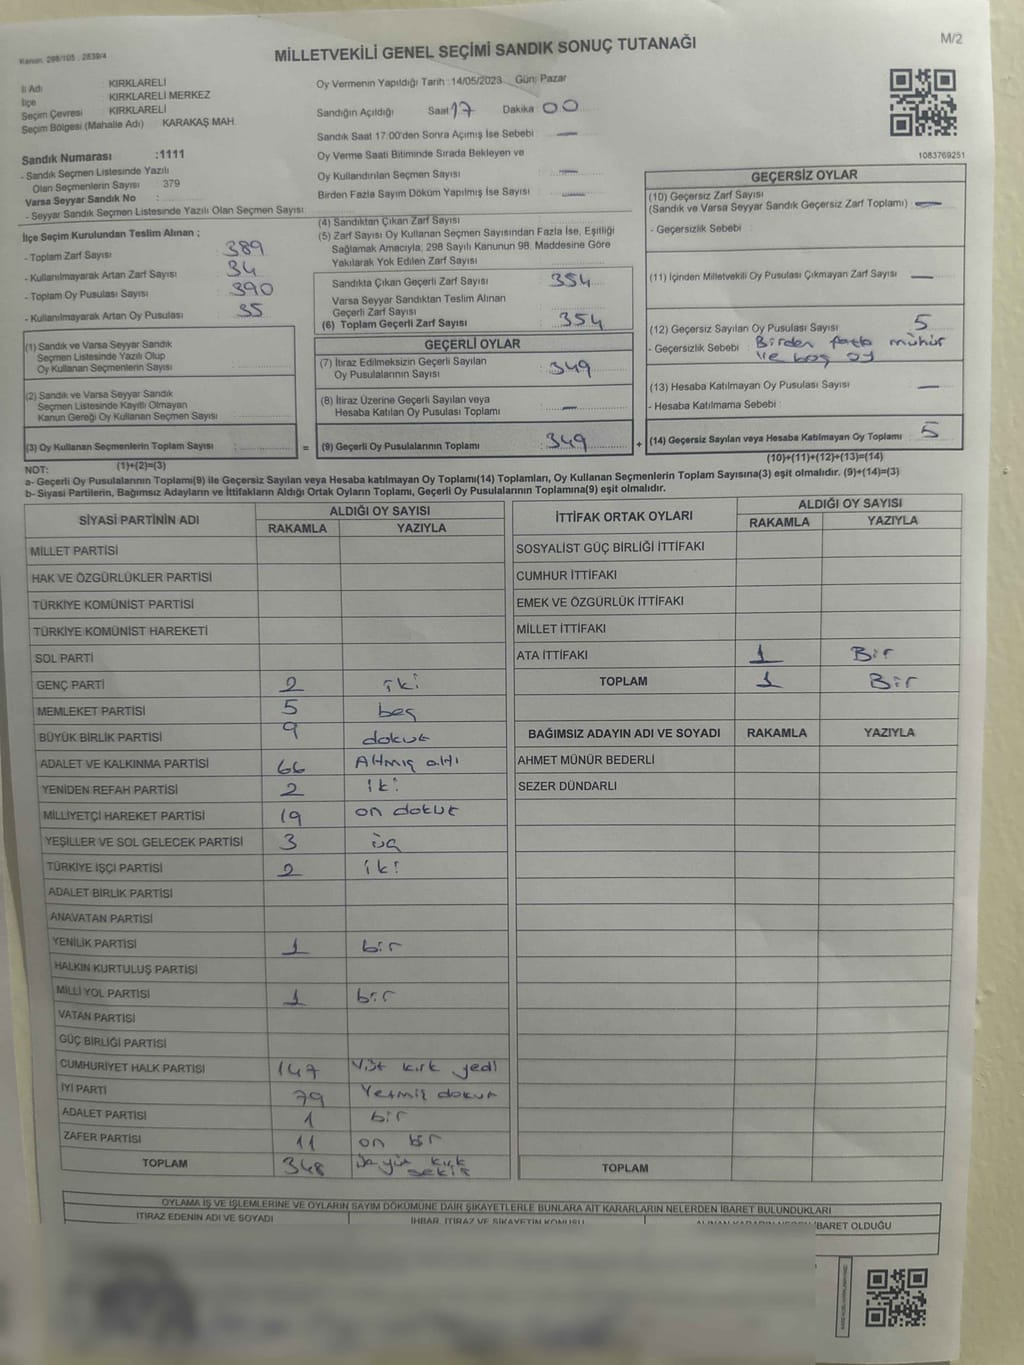 Kanun. 298/105 . 2839/4
MİLLETVEKİLİ GENEL SEÇİMİ SANDIK SONUÇ TUTANAĞI
M/2
İl Adı KIRKLARELİ
İlçe KIRKLARELİ MERKEZ
Seçim Çevresi KIRKLARELİ
Seçim Bölgesi (Mahalle Adı) KARAKAŞ MAH.
Sandık Numarası :1111
- Sandık Seçmen Listesinde Yazılı
Olan Seçmenlerin Sayısı : 379
Varsa Seyyar Sandık No :
- Seyyar Sandık Seçmen Listesinde Yazılı Olan Seçmen Sayısı:
Oy Vermenin Yapıldığı Tarih :14/05/2023 Gün: Pazar
Sandığın Açıldığı Saat 17 Dakika 00
Sandık Saat 17:00'den Sonra Açımış İse Sebebi —
Oy Verme Saati Bitiminde Sırada Bekleyen ve
Oy Kullandırılan Seçmen Sayısı —
Birden Fazla Sayım Döküm Yapılmış İse Sayısı —
1083769251
İlçe Seçim Kurulundan Teslim Alınan ;
- Toplam Zarf Sayısı 389
- Kullanılmayarak Artan Zarf Sayısı 34
- Toplam Oy Pusulası Sayısı 390
- Kullanılmayarak Artan Oy Pusulası 35
(1) Sandık ve Varsa Seyyar Sandık
Seçmen Listesinde Yazılı Olup
Oy Kullanan Seçmenlerin Sayısı :
(2) Sandık ve Varsa Seyyar Sandık
Seçmen Listesinde Kayıtlı Olmayan
Kanun Gereği Oy Kullanan Seçmen Sayısı :
(3) Oy Kullanan Seçmenlerin Toplam Sayısı :
(1)+(2)=(3)
(4) Sandıktan Çıkan Zarf Sayısı
(5) Zarf Sayısı Oy Kullanan Seçmen Sayısından Fazla İse, Eşitliği
Sağlamak Amacıyla, 298 Sayılı Kanunun 98. Maddesine Göre
Yakılarak Yok Edilen Zarf Sayısı
Sandıkta Çıkan Geçerli Zarf Sayısı 354
Varsa Seyyar Sandıktan Teslim Alınan
Geçerli Zarf Sayısı
(6) Toplam Geçerli Zarf Sayısı 354
GEÇERLİ OYLAR
(7) İtiraz Edilmeksizin Geçerli Sayılan
Oy Pusulalarının Sayısı 349
(8) İtiraz Üzerine Geçerli Sayılan veya
Hesaba Katılan Oy Pusulası Toplamı —
= (9) Geçerli Oy Pusulalarının Toplamı 349
GEÇERSİZ OYLAR
(10) Geçersiz Zarf Sayısı
(Sandık ve Varsa Seyyar Sandık Geçersiz Zarf Toplamı) —
- Geçersizlik Sebebi :
(11) İçinden Milletvekili Oy Pusulası Çıkmayan Zarf Sayısı —
(12) Geçersiz Sayılan Oy Pusulası Sayısı 5
- Geçersizlik Sebebi : Birden fazla mühür
ve boş oy
(13) Hesaba Katılmayan Oy Pusulası Sayısı —
- Hesaba Katılmama Sebebi :
+ (14) Geçersiz Sayılan veya Hesaba Katılmayan Oy Toplamı 5
(10)+(11)+(12)+(13)=(14)
NOT:
a- Geçerli Oy Pusulalarının Toplamı(9) ile Geçersiz Sayılan veya Hesaba katılmayan Oy Toplamı(14) Toplamları, Oy Kullanan Seçmenlerin Toplam Sayısına(3) eşit olmalıdır. (9)+(14)=(3)
b- Siyasi Partilerin, Bağımsız Adayların ve İttifakların Aldığı Ortak Oyların Toplamı, Geçerli Oy Pusulalarının Toplamına(9) eşit olmalıdır.
SİYASİ PARTİNİN ADI ALDIĞI OY SAYISI
RAKAMLA YAZIYLA
MİLLET PARTİSİ
HAK VE ÖZGÜRLÜKLER PARTİSİ
TÜRKİYE KOMÜNİST PARTİSİ
TÜRKİYE KOMÜNİST HAREKETİ
SOL PARTİ
GENÇ PARTİ 2 iki
MEMLEKET PARTİSİ 5 beş
BÜYÜK BİRLİK PARTİSİ 9 dokuz
ADALET VE KALKINMA PARTİSİ 66 Altmış altı
YENİDEN REFAH PARTİSİ 2 iki
MİLLİYETÇİ HAREKET PARTİSİ 19 on dokuz
YEŞİLLER VE SOL GELECEK PARTİSİ 3 üç
TÜRKİYE İŞÇİ PARTİSİ 2 iki
ADALET BİRLİK PARTİSİ
ANAVATAN PARTİSİ
YENİLİK PARTİSİ 1 bir
HALKIN KURTULUŞ PARTİSİ
MİLLİ YOL PARTİSİ 1 bir
VATAN PARTİSİ
GÜÇ BİRLİĞİ PARTİSİ
CUMHURİYET HALK PARTİSİ 147 Yüz kırk yedi
İYİ PARTİ 79 Yetmiş dokuz
ADALET PARTİSİ 1 bir
ZAFER PARTİSİ 11 on bir
TOPLAM 348 kırk
sekiz
İTTİFAK ORTAK OYLARI ALDIĞI OY SAYISI
RAKAMLA YAZIYLA
SOSYALİST GÜÇ BİRLİĞİ İTTİFAKI
CUMHUR İTTİFAKI
EMEK VE ÖZGÜRLÜK İTTİFAKI
MİLLET İTTİFAKI
ATA İTTİFAKI 1 Bir
TOPLAM 1 Bir
BAĞIMSIZ ADAYIN ADI VE SOYADI RAKAMLA YAZIYLA
AHMET MÜNÜR BEDERLİ
SEZER DÜNDARLI
TOPLAM
OYLAMA İŞ VE İŞLEMLERİNE VE OYLARIN SAYIM DÖKÜMÜNE DAİR ŞİKAYETLERLE BUNLARA AİT KARARLARIN NELERDEN İBARET BULUNDUKLARI
İTİRAZ EDENİN ADI VE SOYADI İHBAR, İTİRAZ VE ŞİKAYETİN KONUSU İBARET OLDUĞU